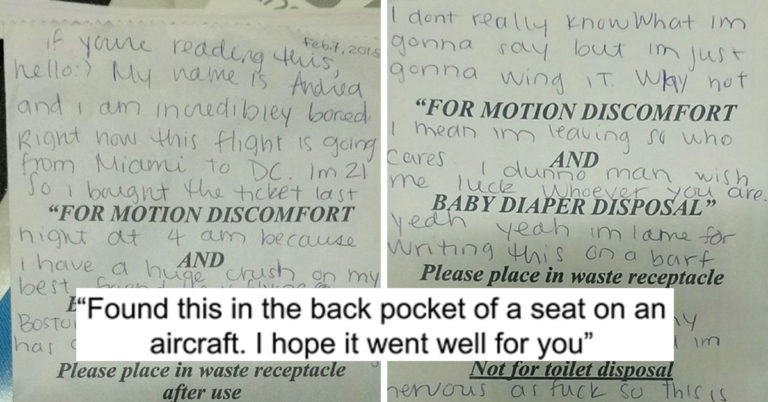 Feb. 7, 2015
if youre reading this,
hello:) My name is Andrea
and i am incredibley bored
Right now this flight is going
from Miami to DC. Im 21
So i bought the ticket last
"FOR MOTION DISCOMFORT
night at 4 am because
AND
i have a huge crush on my
best
Bosto
has
Please place in waste receptacle
after use
I dont really know what im
gonna say but im just
gonna wing it. Why not
"FOR MOTION DISCOMFORT
I mean im leaving so who
cares
AND
I dunno man wish
me luck whoever you are.
BABY DIAPER DISPOSAL"
yeah yeah im lame for
writing this on a barf
Please place in waste receptacle
im
Not for toilet disposal
nervous as fuck so this is
“Found this in the back pocket of a seat on an
aircraft. I hope it went well for you”